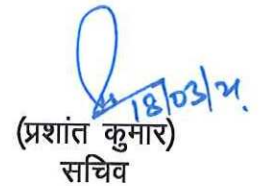 18/03/21.
(प्रशांत कुमार)
सचिव